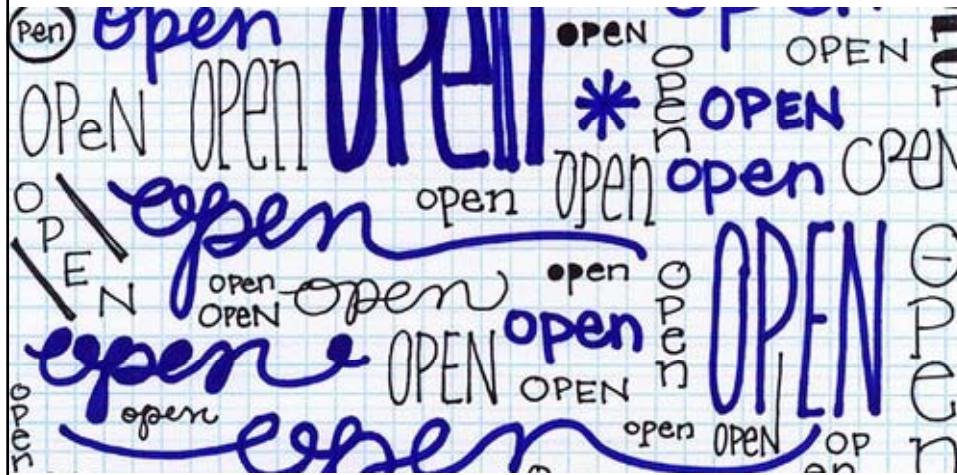 Pen
open
OPEN
OPEN
open
OPEN
OPeN
OPEn
OPen
OPEN
open
open
OPen
open
OPEN
OPEN
open
open
open
OPEN
OPen
OPen
open
OPeN
open
open
OPEN
open
OPEN
open
open
open
open
OPeN
OP
en